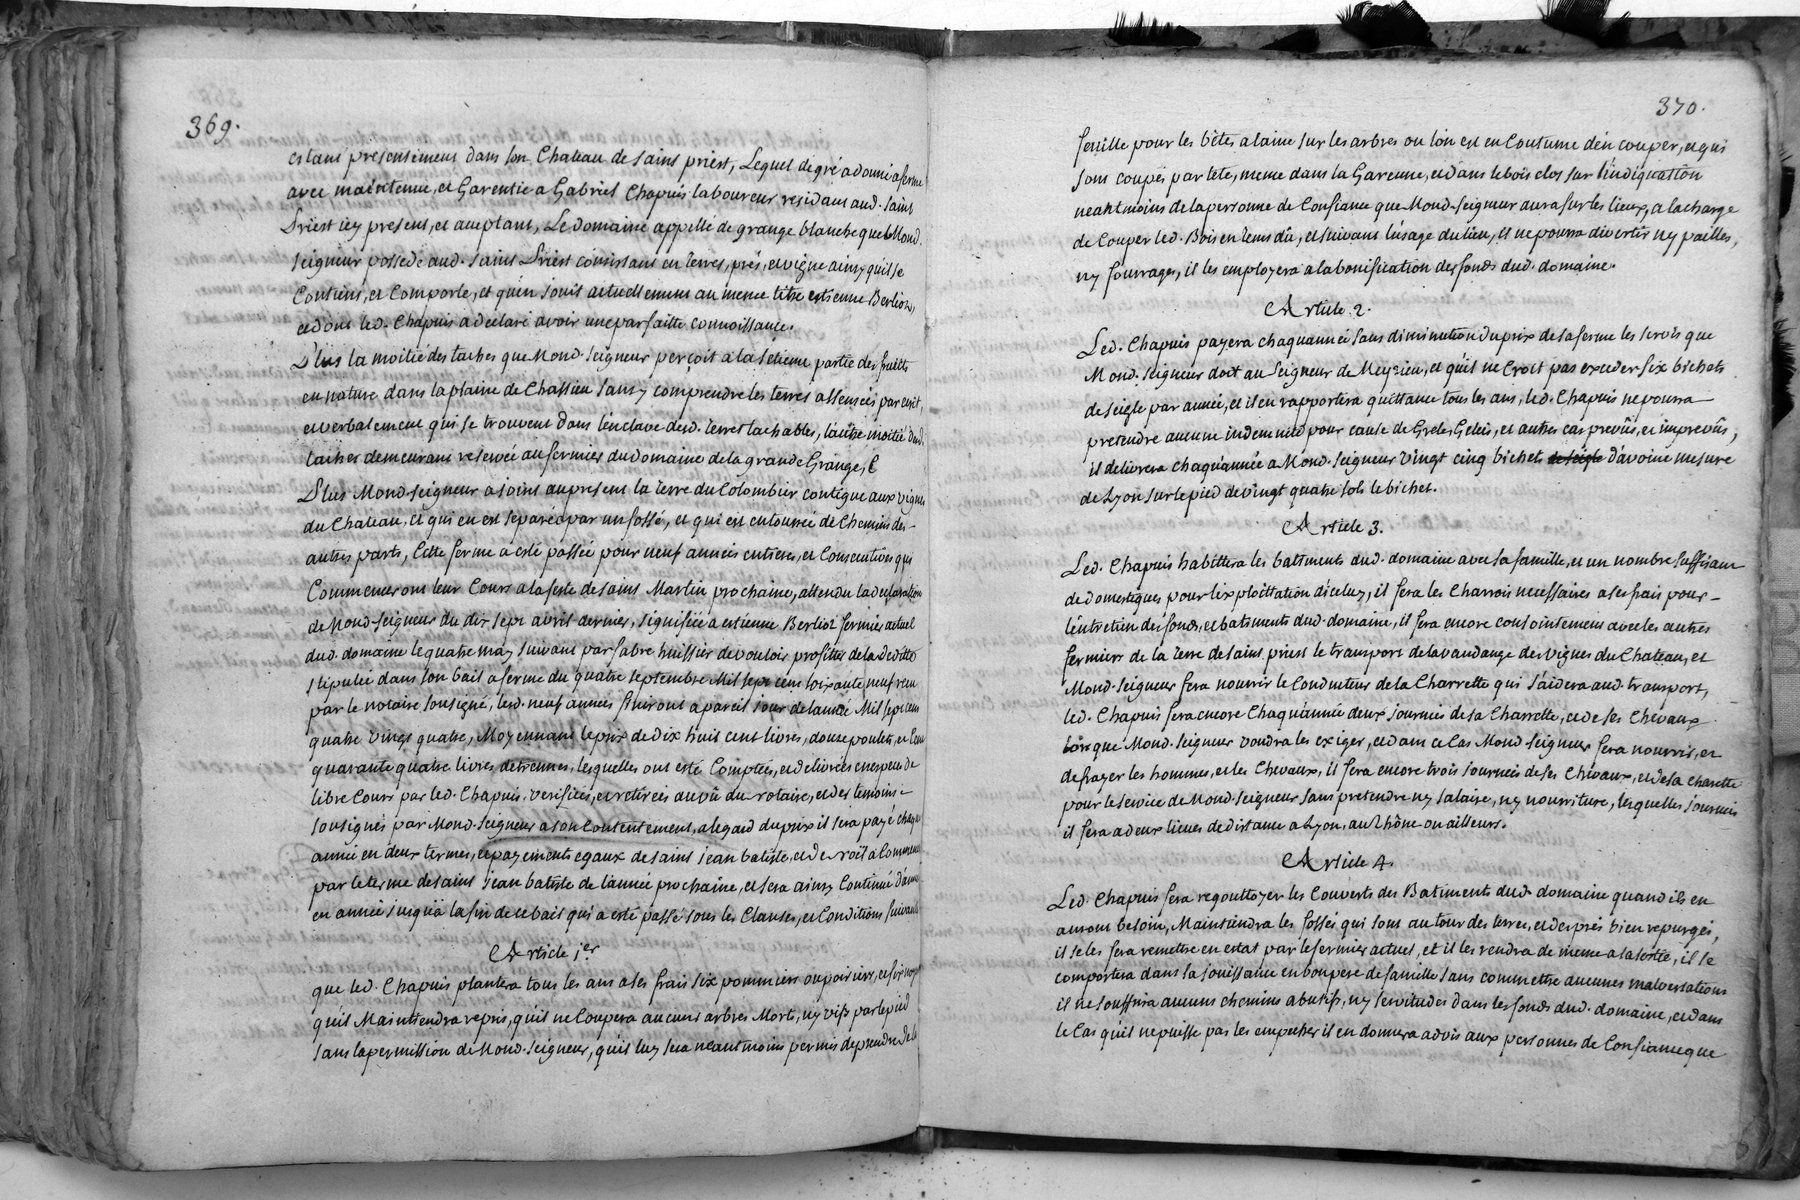 369.
estant presentement dans son Chateau de saint priest, Lequel de gré a donné a ferme
avec maintenue, et Garentie a Gabriel Chapuis laboureur residant aud. saint
Priest icy present, et acceptant, Le domaine appellé de grange blanche que Mond.
seigneur possede aud. saint Priest consistant en terres, prés, et vigne ainsy quil se
Contient, et Comporte, et qu'en jouit actuellement au meme titre estienne Berlioz,
et dont led. Chapuis a declaré avoir une parfaitte connoissance.
Plus la moitié des taches que Mond. seigneur perçoit a la partie des fruits
en nature dans la plaine de Chassieu sans y comprendre les terres assencées par ecrit,
et verbalement qui se trouvent dans l'enclave desd. terres tachables, l'autre moitié desd.
taches demeurant reservée au fermier du domaine de la grande Grange,
Plus Mond. seigneur a joint au present la terre du Colombier contigue aux vignes
du Chateau, et qui en est separée par un fossé, et qui est entourrée de Chemins des
autres parts, Cette ferme a esté passée pour neuf années entieres, et Consecutives qui
Commenceront leur Cours a la feste de saint Martin prochaine, attendu la declaration
de Mond. seigneur du dix sept avril dernier, signifiée a estienne Berlioz fermier actuel
dud. domaine le quatre may suivant par fabre huissier de vouloir profitter de la deditte
stipulée dans son bail a ferme du quatre septembre Mil sept cent soixante neuf receu
par le notaire soussigné, lesd. neuf années finiront a pareil jour de l'année Mil sept cent
quatre vingt quatre, Moyennant le prix de Dix huit cent livres, douze poulets, et Cent
quarante quatre livres detrennes, lesquelles ont esté Comptées, et delivrées en especes de
libre Cours par led. Chapuis, verifiées, et retirées au vû du notaire, et des temoins
sousignés par Mond. seigneur a son Contentement, a legard du prix il sera payé chaque
année en deux termes, et payements egaux de saint jean batiste, et de noël a Commencer
par le terme de saint jean batiste de l'année prochaine, et sera ainsy Continué d'année
en année jusqu'a la fin de ce bail qui a esté passé sous les Clauses, et Conditions suivantes
Article 1.er
que led. Chapuis plantera tous les ans a ses frais six pommiers ou poiriers, et six noyers
qu'il Maintiendra repris, qu'il ne Coupera aucuns arbres Morts, ny vifs par le pied
sans la permission de Mond. seigneur, qu'il luy sera neantmoins permis de prendre de la
370.
feuille pour les bêtes a laine sur les arbres ou lon est en Coutume d'en couper, et qui
sont coupés par tête, meme dans la Garenne, et dans le bois clos sur l'indiquation
neantmoins de la personne de Confiance que Mond. seigneur aura sur les lieux, a la charge
de Couper led. Bois en tems dû, et suivant l'usage du lieu, et ne pourra divertir ny pailles,
ny fourrages, il les employera a la bonification des fonds dud. domaine.
Article 2.
Led. Chapuis payera chaqu'année sans diminution du prix de sa ferme les servis que
Mond. seigneur doit au seigneur de Meyzieu, et qu'il ne Croit pas exceder six bichets
de seigle par année, et il en rapportera quittance tous les ans, led. Chapuis ne pourra
pretendre aucune indemnité pour cause de Greles Gelées, et autres cas prevûs, et imprevûs,
il delivrera chaqu'année a Mond. seigneur vingt cinq bichets de seigle d'avoine mesure
de Lyon sur le pied de vingt quatre sols le bichet.
Article 3.
Led. Chapuis habittera les batiments dud. domaine avec sa famille, et un nombre suffisant
de domestiques pour l'exploittation d'iceluy, il fera les Charrois necessaires a ses frais pour
l'entretien des fonds, et batiments dud. domaine, il fera encore conjointement avec les autres
fermiers de la terre de saint priest le transport de la vandange des vignes du Chateau, et
Mond. seigneur fera nourrir le Conducteur de la Charrette qui s'aidera aud. transport,
led. Chapuis fera encore Chaqu'année deux journées de sa Charrette, et de ses Chevaux
lors que Mond. seigneur voudra les exiger, et dans ce Cas Mond. seigneur fera nourrir, et
defrayer les hommes, et les Chevaux, il fera encore trois journées de ses Chevaux, et de sa Charette
pour le service de Mond. seigneur sans pretendre ny salaire, ny nourriture, lesquelles journées
il fera a deux lieues de distance a Lyon, au Rhône ou ailleurs.
Article 4.
Led. Chapuis fera regouttoyer les Couverts des Batiments dud. domaine quand ils en
auront besoin, Maintiendra les fossés qui sont au tour des terres, et des prés bien repurgés,
il se les fera remettre en estat par le fermier actuel, et il les rendra de meme a la sortie, il se
comportera dans sa jouissance en bon pere de famille sans commettre aucunes malversations
il ne souffrira aucuns chemins abusifs, ny servitudes dans les fonds dud. domaine, et dans
le Cas qu'il ne puisse pas les empecher il en donnera advis aux personnes de Confiance que